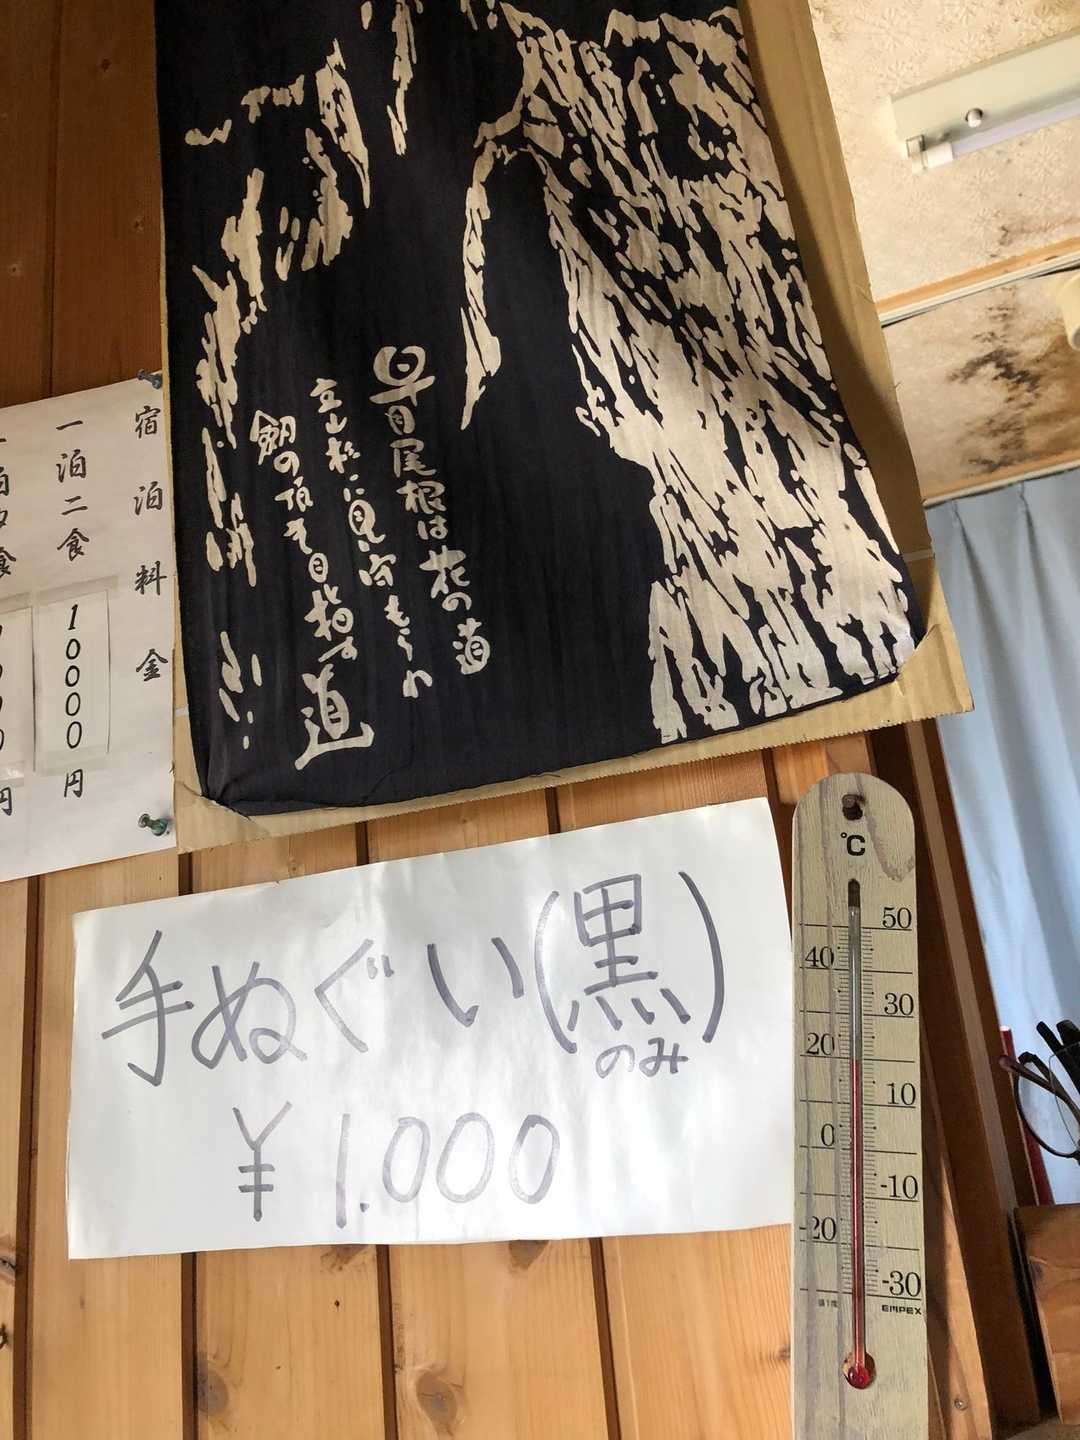 早月尾根は花の道
立山杉に見守もられ
劔の頂を目指す道
宿泊料金
一泊二食
10000円
円
手ぬぐい(黒)
のみ
¥1.000
℃
50
40
30
20
10
0
-10
-20
-30
EMPEX